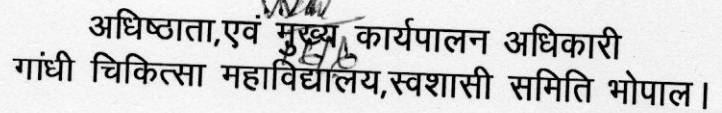 अधिष्ठाता,एवं मुख्य कार्यपालन अधिकारी
गांधी चिकित्सा महाविद्यालय,स्वशासी समिति भोपाल।